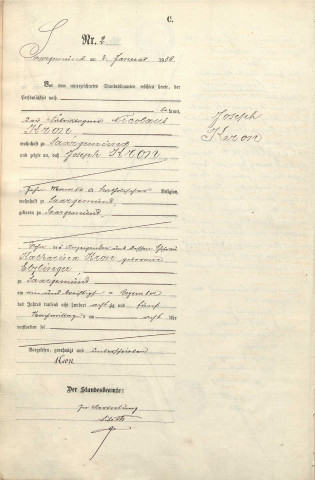 C.
Nr. 2
Saargemünd am 2. Januar 1886.
Vor dem unterzeichneten Standesbeamten erschien heute, der
Persönlichkeit nach
bekannt,
der Nicolaus
Kron
wohnhaft zu Saargemünd
und zeigte an, daß Joseph Kron
Joseph
Kron
katholischer Religion,
wohnhaft zu Saargemünd,
geboren zu Saargemünd,
Sohn des Anzeigenden und dessen Ehefrau
Katharina Kron geborene
Etzlinger
zu Saargemünd
am ein und dreißigsten Dezember
des Jahres tausend acht hundert achtzig und fünf
Nachmittags um acht Uhr
verstorben sei
Vorgelesen, genehmigt und unterschrieben
Kron
Der Standesbeamte:
In Vertretung